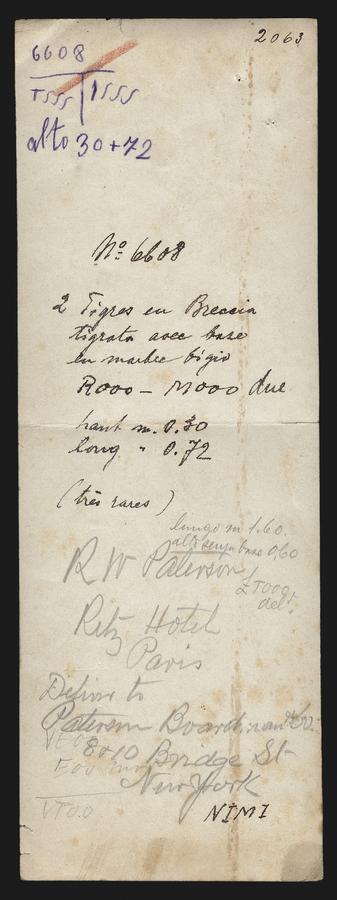 2063
6608
Tsss | Isss
alto 30+72
Nº 6608
2 Tigres en Breccia
tigrata avec base
en marbre bigio
Rooo - Mooo due
haut m. 0.30
long " 0.72
(très rares)
lungo m 1.60.
alt. senza base 0,60
R W Paterson
Ritz Hotel
Paris
Deliver to
Paterson Boardman
8 & 10 Bridge St
New York
VTO.O
NIMI